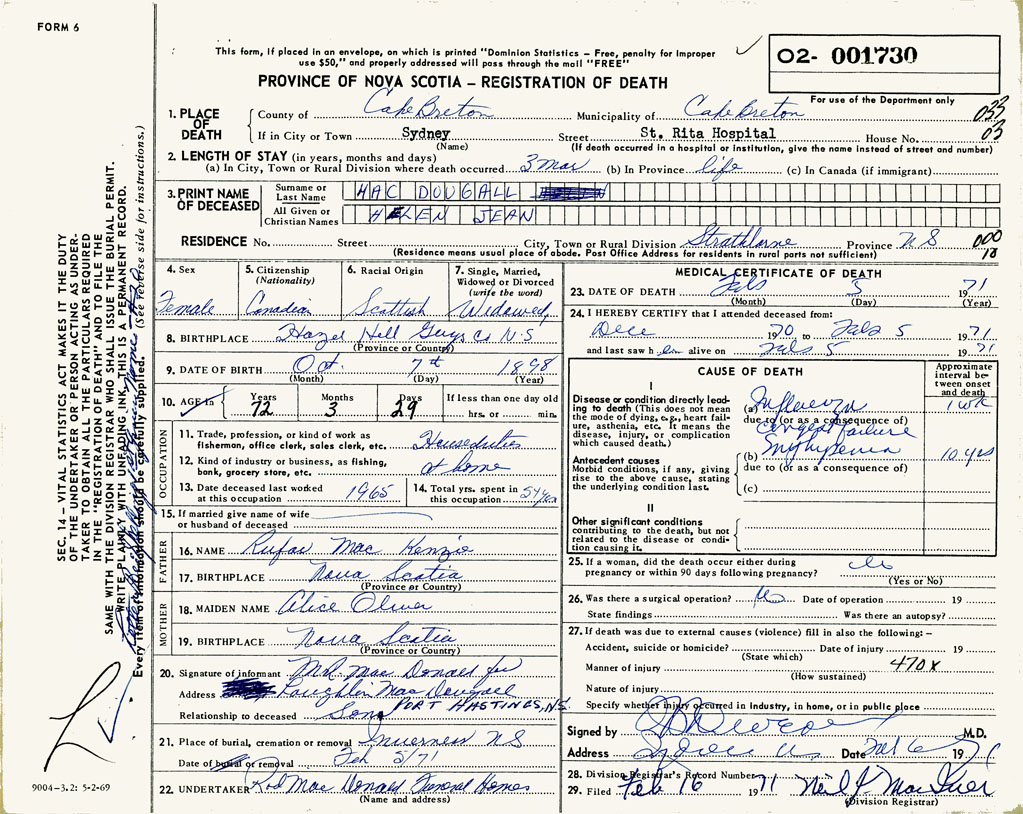 FORM 6
This form, if placed in an envelope, on which is printed "Dominion Statistics – Free, penalty for improper
use $50," and properly addressed will pass through the mail "FREE"
O2- 001730
PROVINCE OF NOVA SCOTIA – REGISTRATION OF DEATH
For use of the Department only
1. PLACE OF DEATH County of Cape Breton Municipality of Cape Breton 033
If in City or Town Sydney Street St. Rita Hospital House No. 03
(Name) (If death occurred in a hospital or institution, give the name instead of street and number)
2. LENGTH OF STAY (in years, months and days)
(a) In City, Town or Rural Division where death occurred 3 mos (b) In Province life (c) In Canada (if immigrant)
3. PRINT NAME OF DECEASED Surname or Last Name MAC DOUGALL
All Given or Christian Names HELEN JEAN
RESIDENCE No. Street City, Town or Rural Division Strathlorne Province NS 000
10
(Residence means usual place of abode. Post Office Address for residents in rural parts not sufficient)
4. Sex Female
5. Citizenship (Nationality) Canadian
6. Racial Origin Scottish
7. Single, Married, Widowed or Divorced (write the word) Widowed
8. BIRTHPLACE Hazel Hill Guys Co N.S
(Province or Country)
9. DATE OF BIRTH Oct. 7th 1898
(Month) (Day) (Year)
10. AGE In Years 72 Months 3 Days 29 If less than one day old hrs. or min.
OCCUPATION
11. Trade, profession, or kind of work as fisherman, office clerk, sales clerk, etc. Houseduties
12. Kind of industry or business, as fishing, bank, grocery store, etc. at home
13. Date deceased last worked at this occupation 1965
14. Total yrs. spent in this occupation
15. If married give name of wife or husband of deceased
FATHER
16. NAME Rufas Mac Kenzie
17. BIRTHPLACE Nova Scotia
(Province or Country)
MOTHER
18. MAIDEN NAME Alice Oliver
19. BIRTHPLACE Nova Scotia
(Province or Country)
20. Signature of informant Mac Donald for
Address Laughlin MacDougall
Relationship to deceased Son PORT HASTINGS, N.S.
21. Place of burial, cremation or removal Inverness N S
Date of burial or removal Feb 5/71
22. UNDERTAKER Rod Mac Donald Funeral Homes
(Name and address)
MEDICAL CERTIFICATE OF DEATH
23. DATE OF DEATH Feb 5 1971
(Month) (Day) (Year)
24. I HEREBY CERTIFY that I attended deceased from:
Dec 1970 to Feb 5 1971
and last saw h er alive on Feb 5 1971
CAUSE OF DEATH
Approximate interval between onset and death
I
Disease or condition directly leading to death (This does not mean the mode of dying, e.g., heart failure, asthenia, etc. It means the disease, injury, or complication which caused death.)
(a) Influenza 1 wk
due to (or as a consequence of)
failure
Antecedent causes
Morbid conditions, if any, giving rise to the above cause, stating the underlying condition last.
(b) Emphysema 10 yrs
due to (or as a consequence of)
(c)
II
Other significant conditions
contributing to the death, but not related to the disease or condition causing it.
25. If a woman, did the death occur either during pregnancy or within 90 days following pregnancy? No
(Yes or No)
26. Was there a surgical operation? No Date of operation 19
State findings Was there an autopsy?
27. If death was due to external causes (violence) fill in also the following: –
Accident, suicide or homicide? Date of injury 19
(State which)
Manner of injury 470 X
(How sustained)
Nature of injury
Specify whether injury occurred in industry, in home, or in public place
Signed by M.D.
Address Date Feb 6 1971
28. Division Registrar's Record Number
29. Filed Feb 16 1971 Neil J Mac
(Division Registrar)
SEC. 14 – VITAL STATISTICS ACT MAKES IT THE DUTY
OF THE UNDERTAKER OR PERSON ACTING AS UNDERTAKER
TO OBTAIN ALL THE PARTICULARS REQUIRED
IN THE "REGISTRATION OF DEATH" AND TO FILE THE
SAME WITH THE DIVISION REGISTRAR WHO SHALL ISSUE THE BURIAL PERMIT.
WRITE PLAINLY WITH UNFADING INK, THIS IS A PERMANENT RECORD.
Every item of information should be carefully supplied. (See reverse side for instructions.)
9004–3.2: 5-2-69